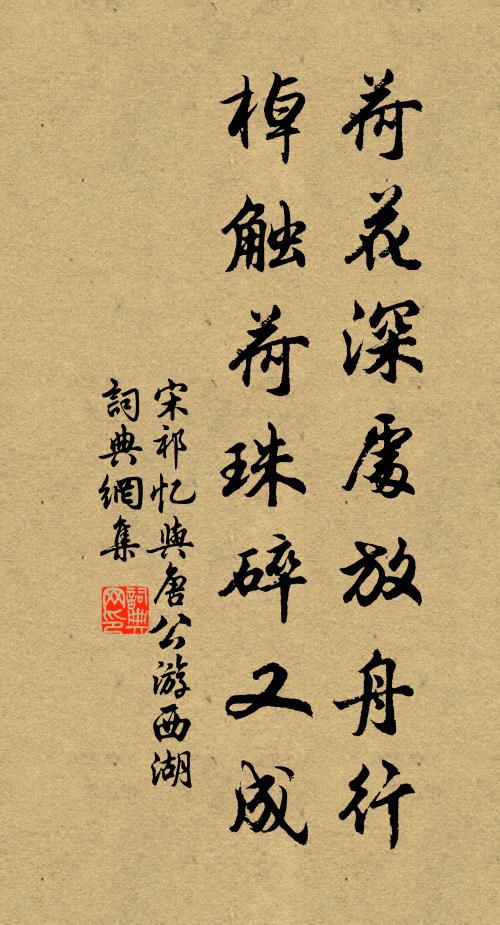 荷花深處放舟行
棹触荷珠碎又成
宋祁忆與唐公游西湖
詞典網集
詞典网印